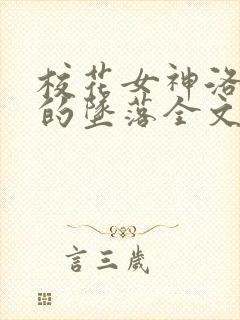 校花女神洛
的墜落全文
言三歲